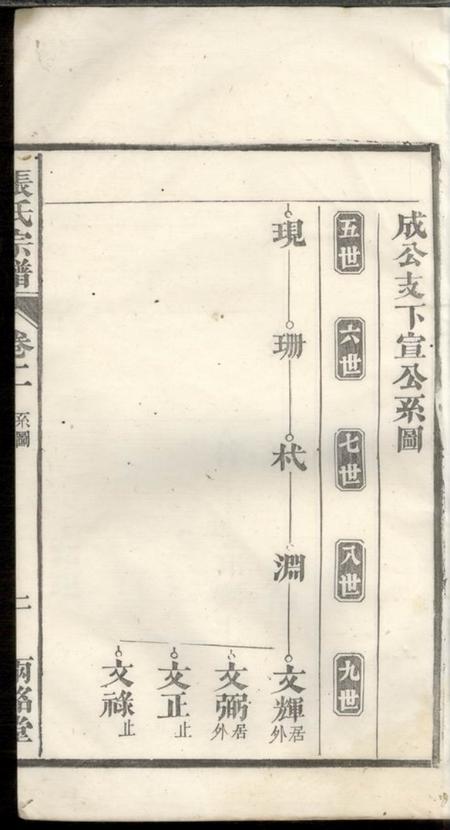 成公支下宣公系圖
五世 六世 七世 八世 九世
現 珊 杙 淵 文輝居外
文弼居外
文正止
文祿止
張氏宗譜 卷二 系圖 二